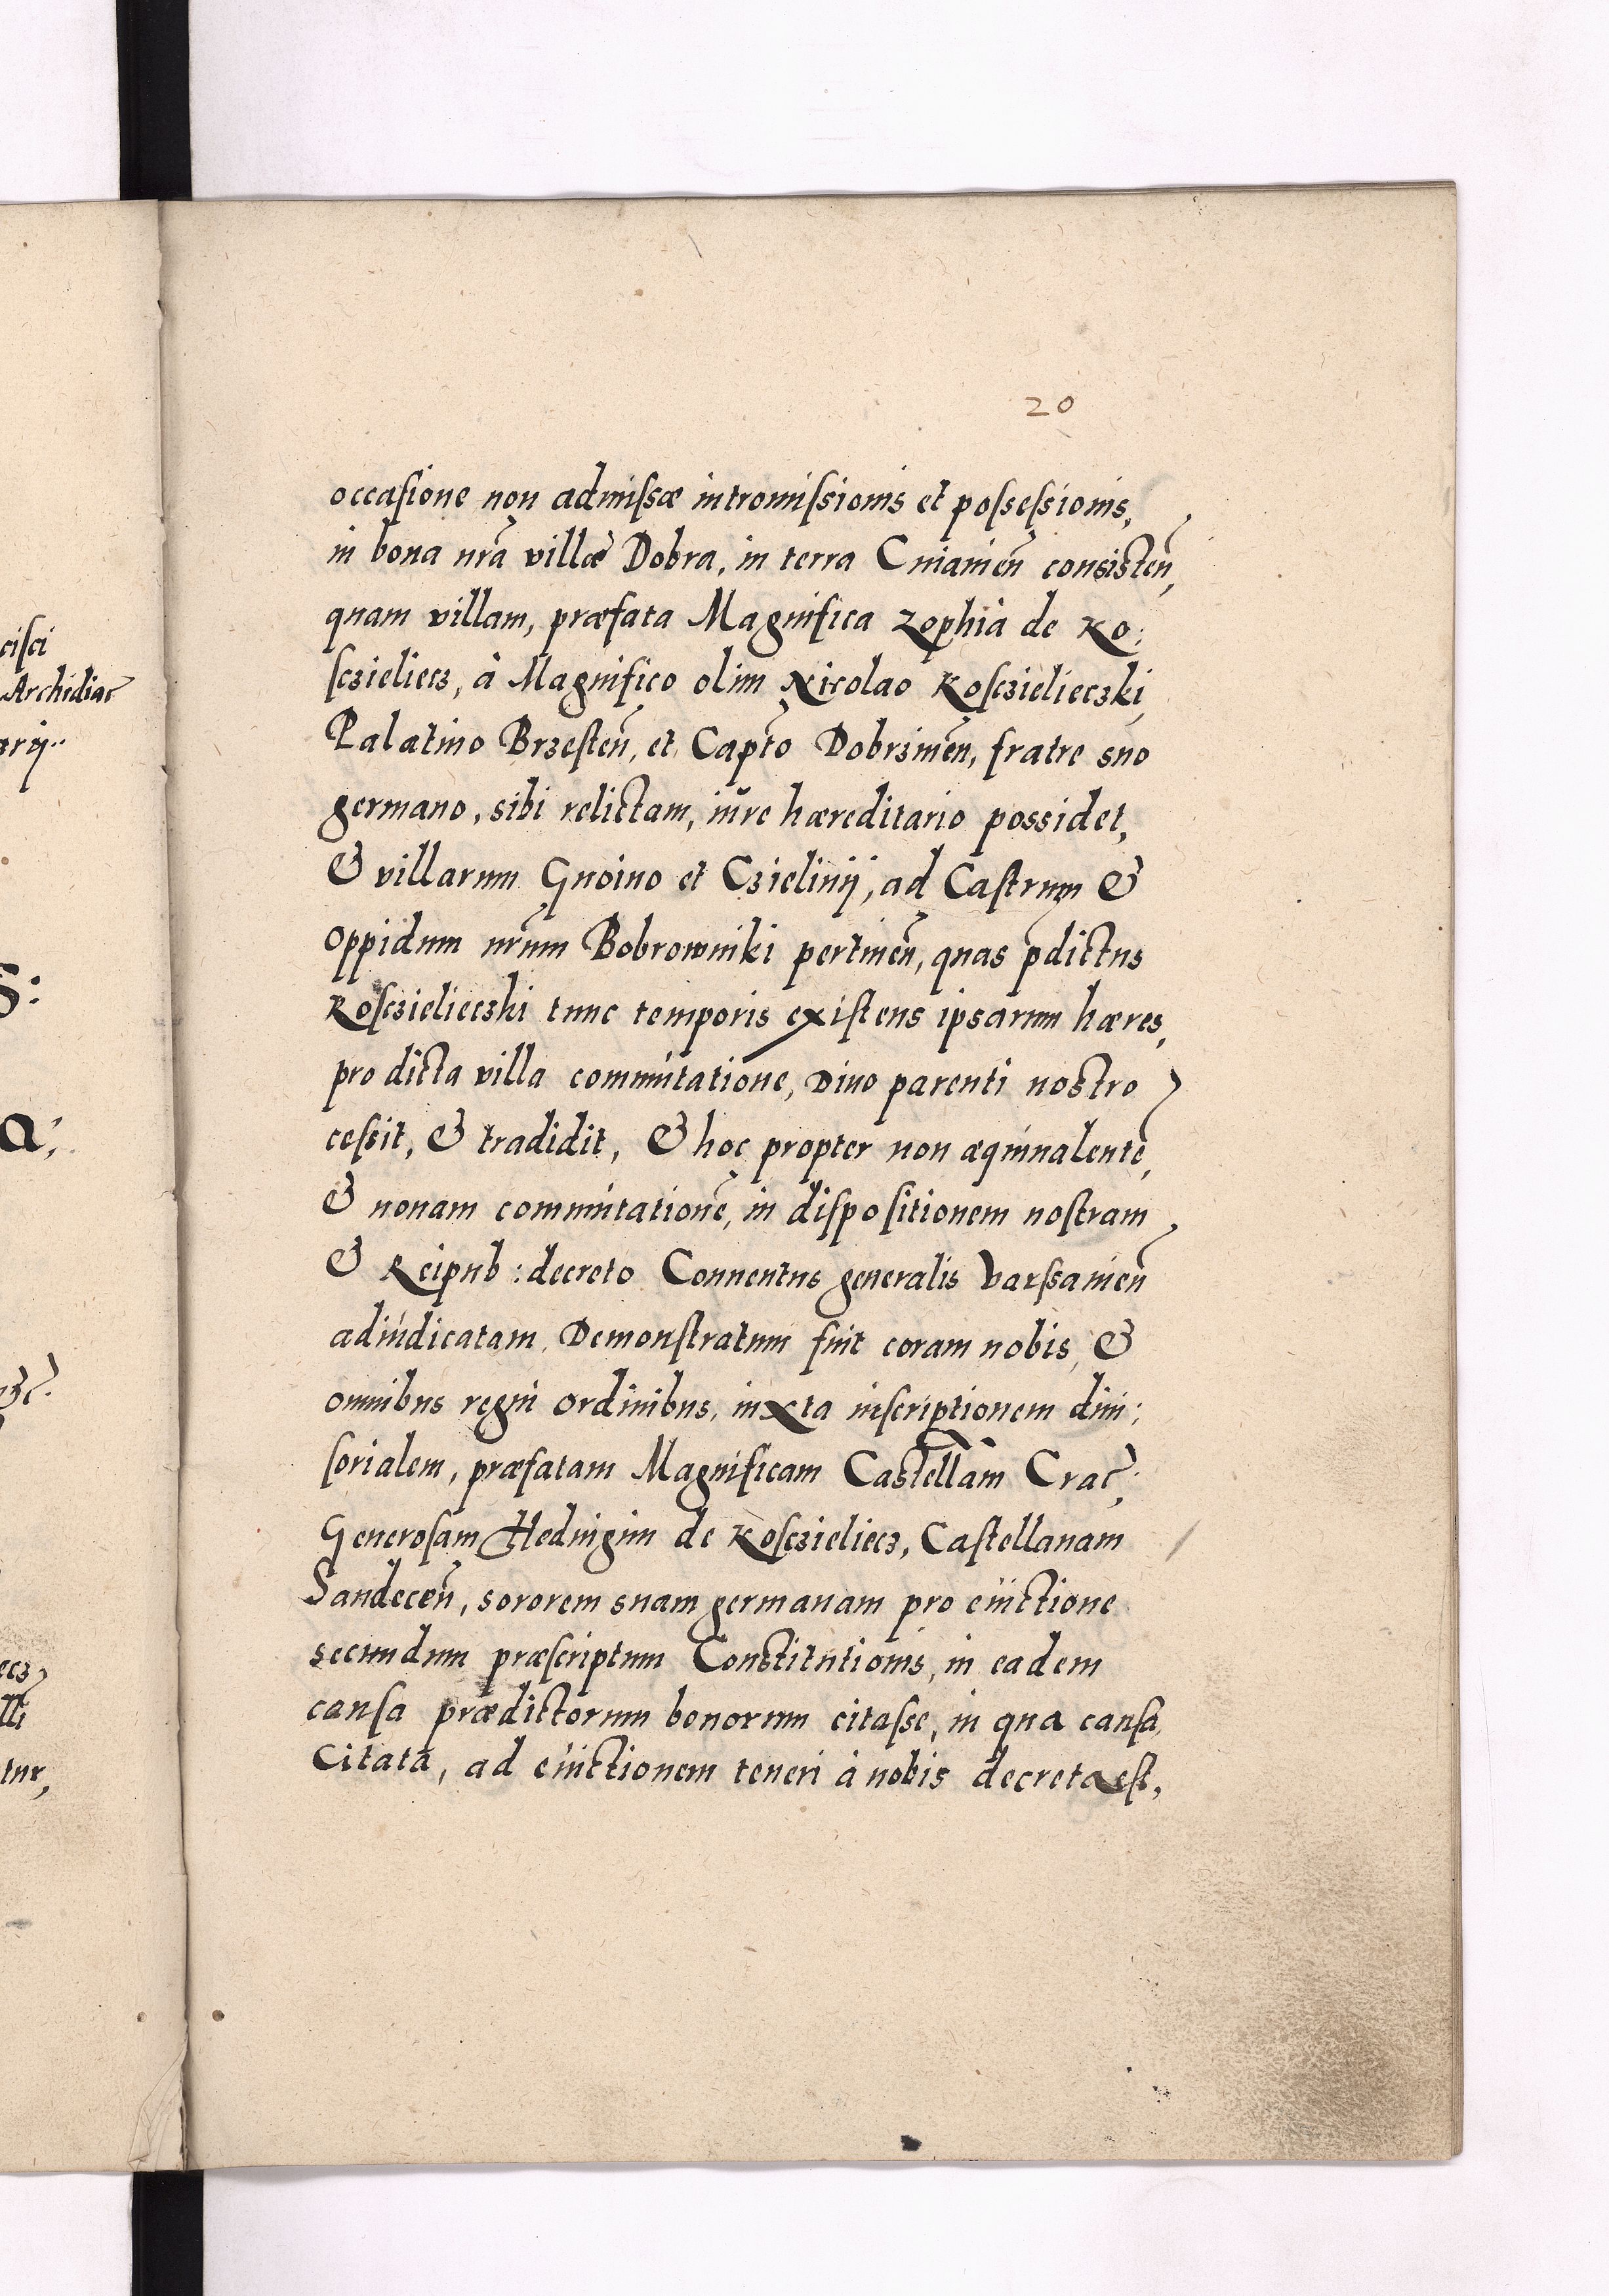 20
occasione non admissæ intromissionis et possessionis,
in bona nrã villæ Dobra, in terra Cuiauień consisteń,
quam villam, præfata Magnifica Zophia de Ko:
sczieliecz, à Magnifico olim Nicolao Kosczielieczki,
Palatino Brzesteń, et Capto Dobrzineń, fratre suo
germano, sibi relictam, iure hæreditario possidet,
& villarum Gnoino et Czielinij, ad Castrum &
oppidum nrũm Bobrowniki pertineń, quas p̃dictus
Kosczielieczki tunc temporis existens ipsarum hæres,
pro dicta villa commutatione, Diuo parenti nostro
cessit, & tradidit, & hoc propter non æquiualentẽ,
& nouam commutationẽ, in dispositionem nostram
& Reipub: decreto Conuentus generalis Varssauień
adiudicatam, Demonstratum fuit coram nobis, &
omnibus regni ordinibus, iuxta inscriptionem diui:
sorialem, præfatam Magnificam Castellam̃ Crac:
Generosam Heduigim de Kosczieliecz, Castellanam
Sandeceń, sororem suam germanam pro euictione
secundum præscriptum Constitutionis, in eadem
causa prædictorum bonorum citasse, in qua causa,
Citata, ad euictionem teneri à nobis decreta est,
cisci
Archidiac
arij
S:
a;
ecz
tur,